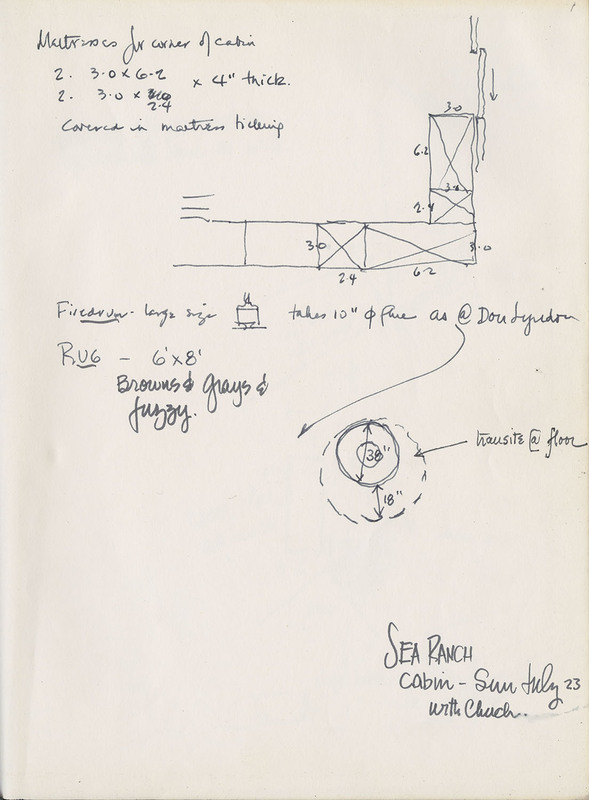 Mattresses for corner of cabin
2. 3.0 x 6.2 x 4" thick.
2. 3.0 x 2.4
Covered in mattress ticking
3.0
6.2
3.0
2.4
3.0
3.0
2.4
6.2
Firedrum - large size takes 10" φ flue as @ Don Lyndon
RUG - 6' x 8'
Browns & Grays &
fuzzy.
38"
transite @ floor
18"
SEA RANCH
Cabin - Sun July 23
with Chuck.